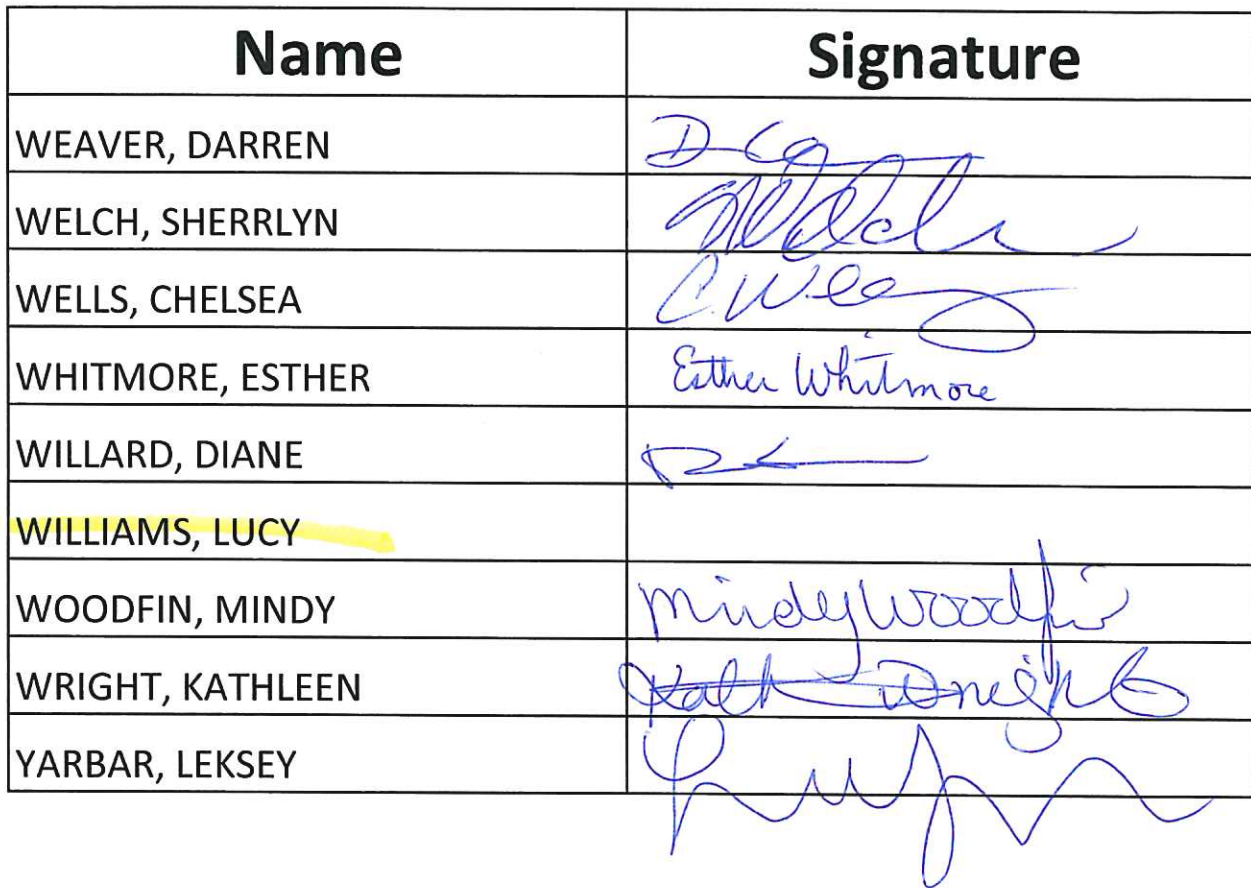 Name Signature
WEAVER, DARREN
WELCH, SHERRLYN
WELLS, CHELSEA C. W
WHITMORE, ESTHER Esther Whitmore
WILLARD, DIANE
WILLIAMS, LUCY
WOODFIN, MINDY Mindy Woodfin
WRIGHT, KATHLEEN Wright
YARBAR, LEKSEY